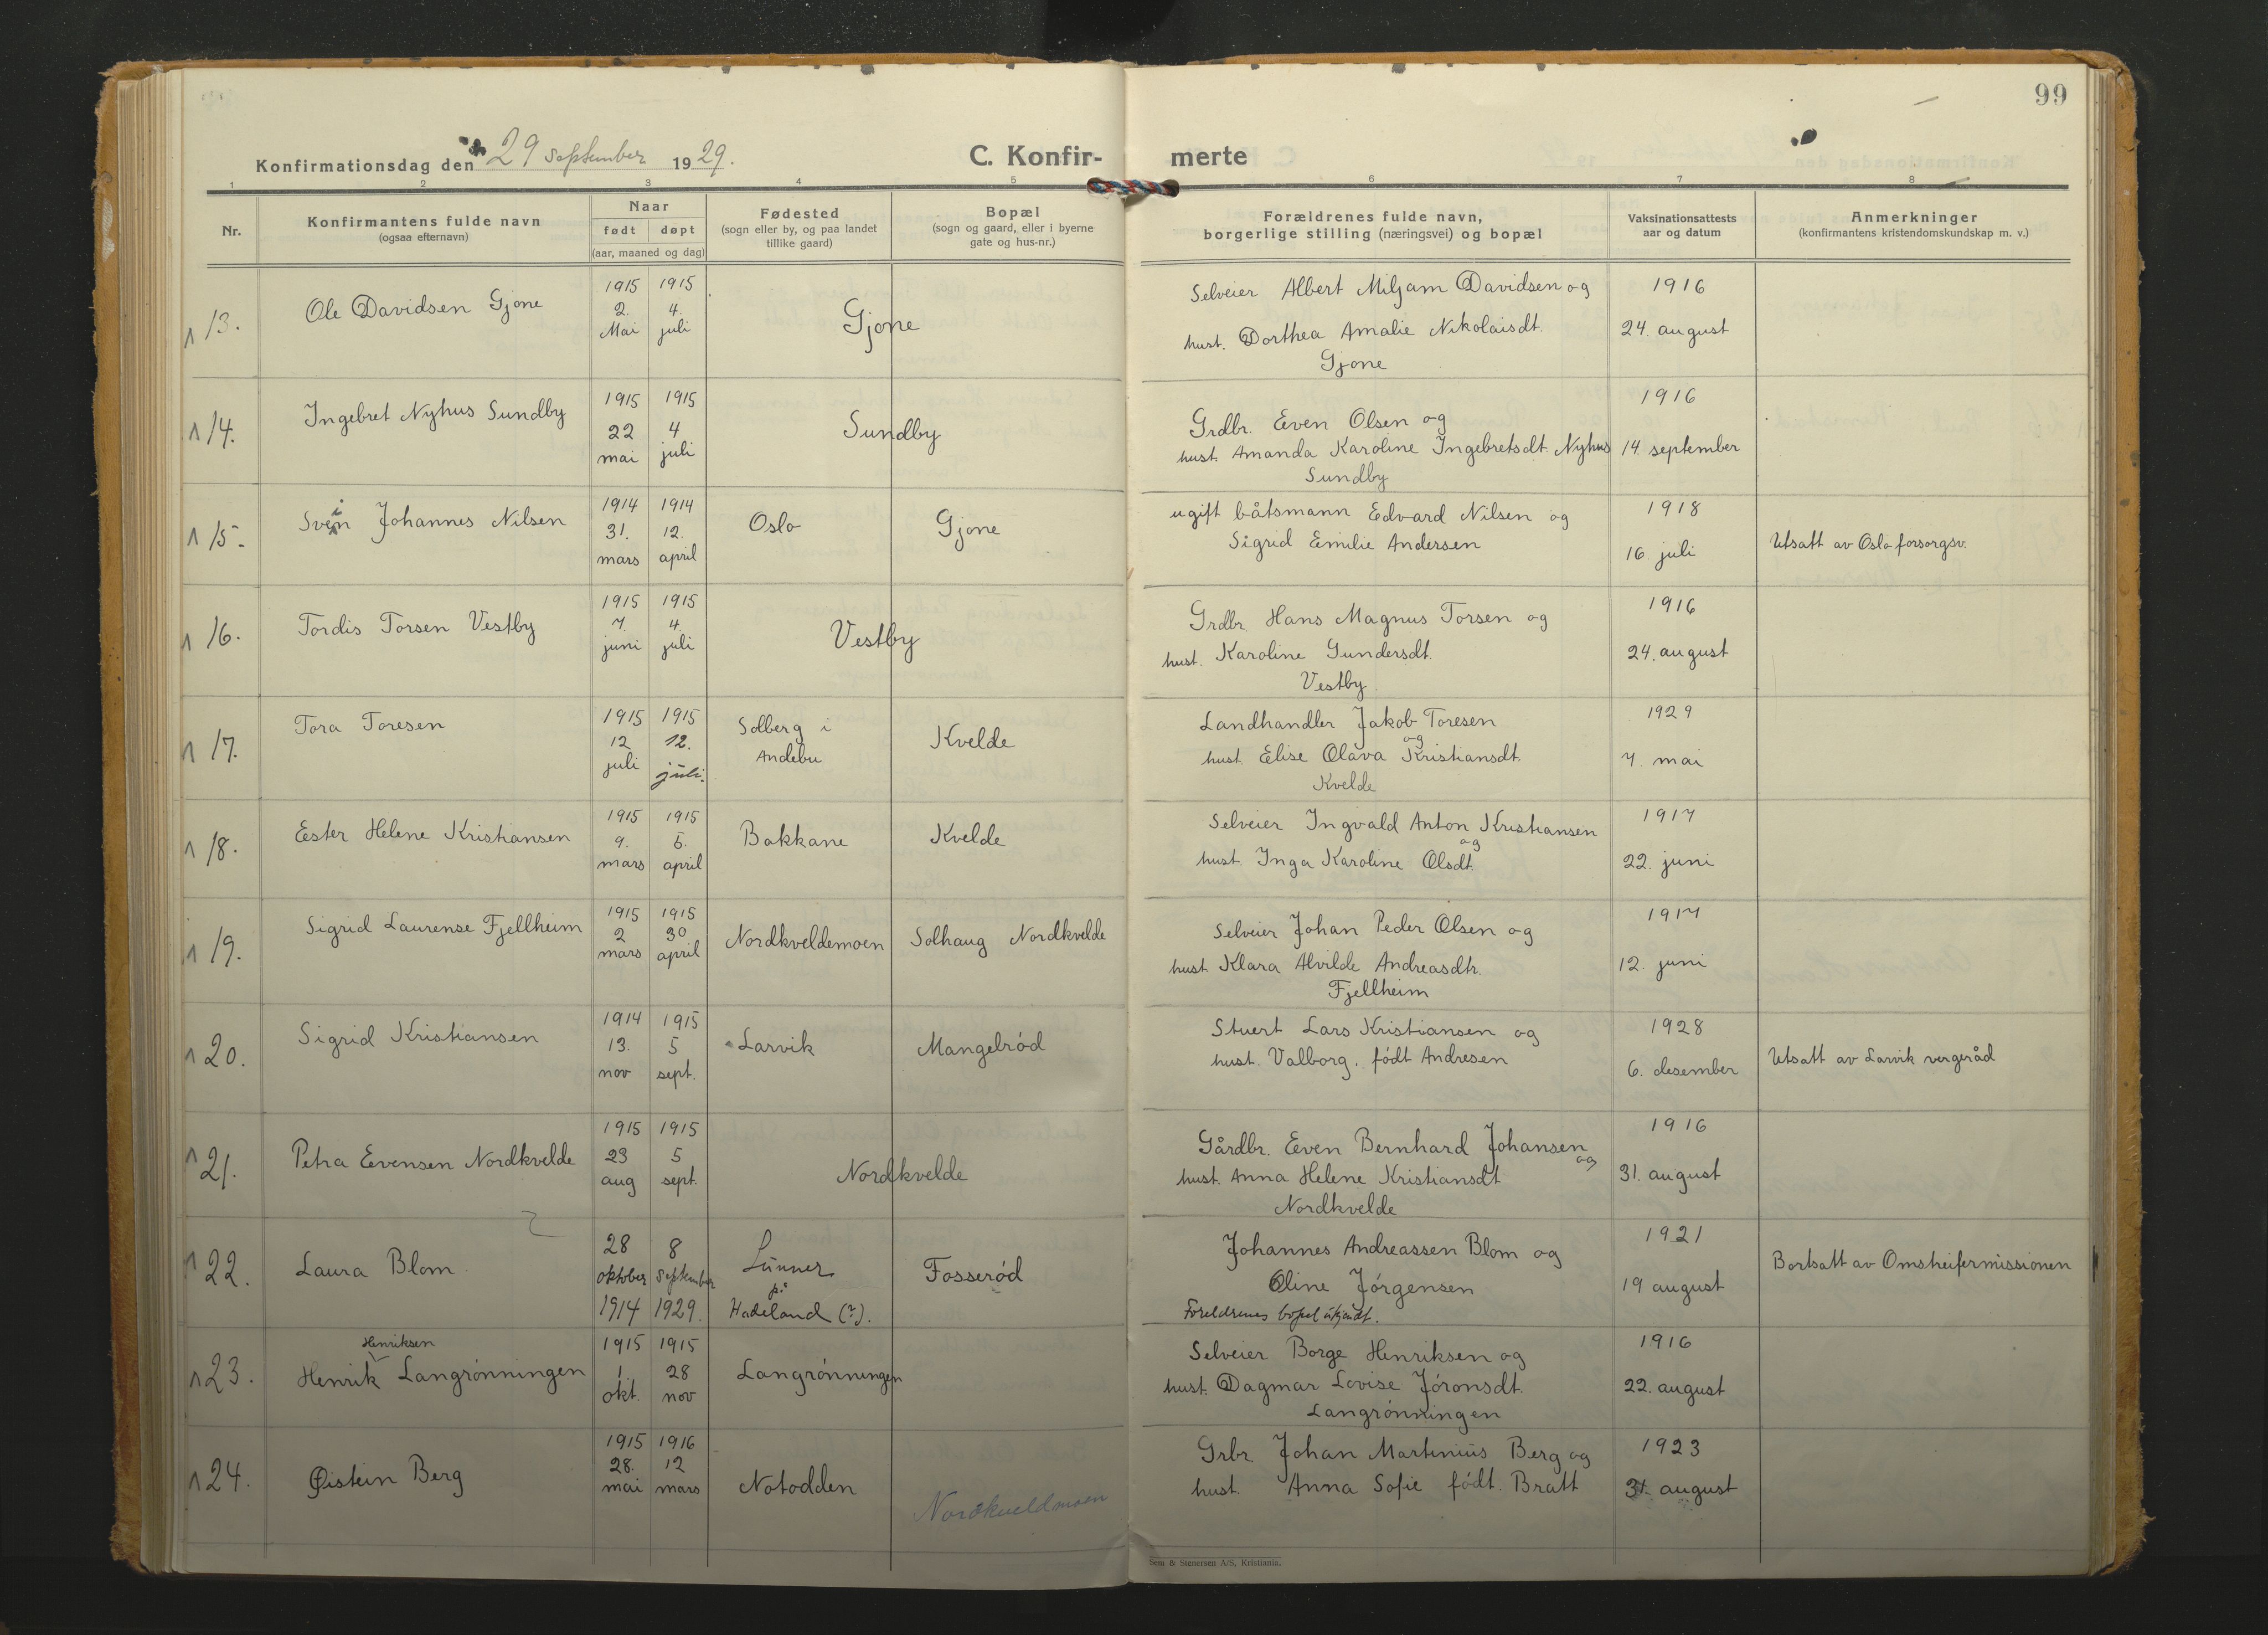 99
Konfirmationsdag den 29 september 1929.
C. Konfir- merte
1 2 3 4 5 6 7 8
Nr.
Konfirmantens fulde navn
(ogsaa efternavn)
Naar
født døpt
(aar, maaned og dag)
Fødested
(sogn eller by, og paa landet
tillike gaard)
Bopæl
(sogn og gaard, eller i byerne
gate og hus-nr.)
Forældrenes fulde navn,
borgerlige stilling (næringsvei) og bopæl
Vaksinationsattests
aar og datum
Anmerkninger
(konfirmantens kristendomskundskap m. v.)
1 13.
Ole Davidsen Gjone
1915 1915
2. 4.
Mai juli
Gjone
Selveier Albert Miljam Davidsen og
hust. Dorthea Amalie Nikolaisdt.
Gjone
1916
24. august
1 14.
Ingebret Nyhus Sundby
1915 1915
22 4
mai juli
Sundby
Grdbr. Even Olsen og
hust. Amanda Karoline Ingebretsdt. Nyhus
Sundby
1916
14. september
1 15.
Svein Johannes Nilsen
1914 1914
31. 12.
mars april
Oslo
Gjone
ugift båtsmann Edvard Nilsen og
Sigrid Emilie Andersen
1918
16. juli
Utsatt av Oslo forsorgsv.
1 16.
Tordis Torsen Vestby
1915 1915
7. 4.
juni juli
Vestby
Grdbr. Hans Magnus Torsen og
hust. Karoline Gundersdt.
Vestby
1916
24. august
1 17.
Tora Toresen
1915 1915
12 12.
juli juli.
Solberg i
Andebu
Kvelde
Landhandler Jakob Toresen
og
hust. Elise Olava Kristiansdt.
Kvelde
1929
7. mai
1 18.
Ester Helene Kristiansen
1915 1915
9. 5.
mars april
Bakkane
Kvelde
Selveier Ingvald Anton Kristiansen
og
hust. Inga Karoline Olsdt.
1917
22. juni
1 19.
Sigrid Laurense Fjellheim
1915 1915
2 30
mars april
Nordkveldemoen
Solhaug Nordkvelde
Selveier Johan Peder Olsen og
hust Klara Alvilde Andreasdtr.
Fjellheim
1917
12. juni
1 20.
Sigrid Kristiansen
1914 1915
13. 5
nov sept.
Larvik
Mangelrød
Stuert Lars Kristiansen og
hust. Valborg, født Andresen
1928
6. desember
Utsatt av Larvik vergeråd
1 21.
Petra Evensen Nordkvelde
1915 1915
23 5
aug sept.
Nordkvelde
Gårdbr. Even Bernhard Johansen
og
hust. Anna Helene Kristiansdt
Nordkvelde
1916
31. august
1 22.
Laura Blom
28 8
oktober september
1914 1929.
Lunner
på
Hadeland (?).
Fosserød
Johannes Andreassen Blom og
Oline Jørgensen
Foreldrenes bopel ukjendt.
1921
19 august
Bortsatt av Omstreifermissionen
1 23.
Henriksen
Henrik Langrønningen
1915 1915
1. 28
okt. nov
Langrønningen
Selveier Borge Henriksen og
hust. Dagmar Lovise Jøronsdt.
Langrønningen
1916
22. august
1 24.
Øistein Berg
1915 1916
28. 12
mai mars
Notodden
Nordkveldmoen
Grbr. Johan Martinius Berg og
hust. Anna Sofie født. Bratt
1923
31. august
Sem & Stenersen A/S, Kristiania.